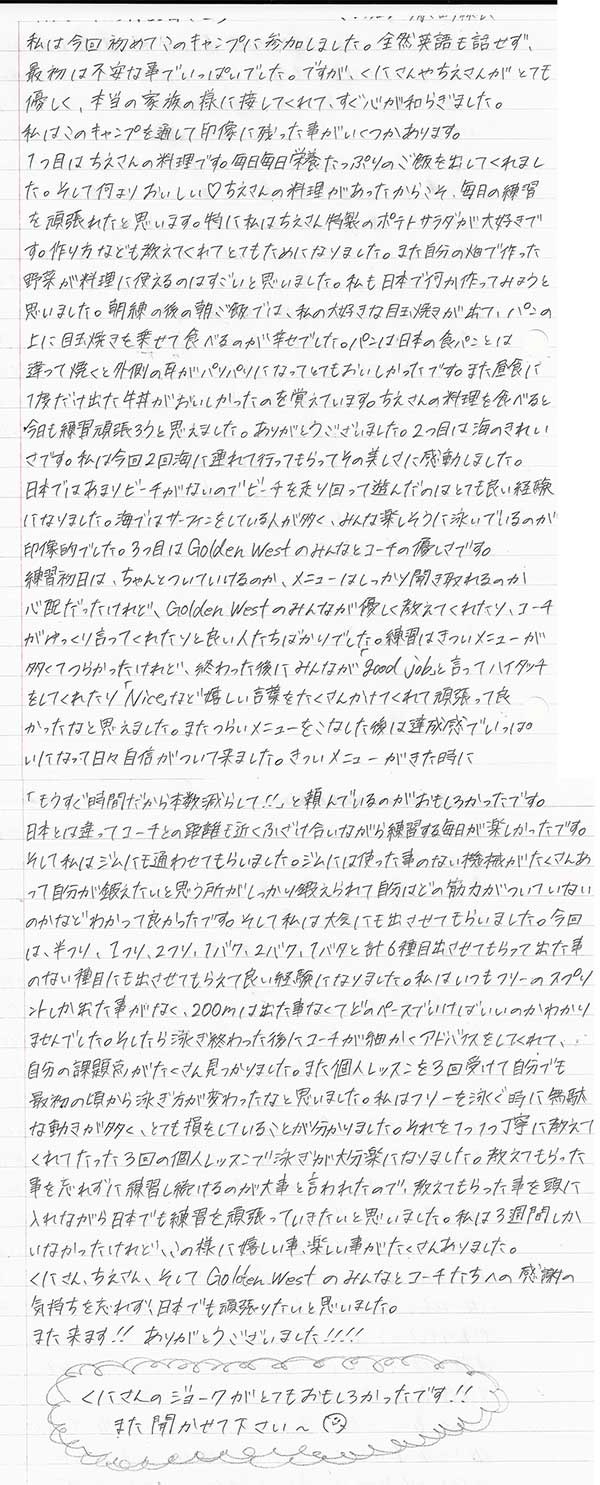 私は今回初めてこのキャンプに参加しました。全然英語も話せず、
最初は不安な事でいっぱいでした。ですが、くにさんやちえさんがとても
優しく、本当の家族の様に接してくれて、すぐ心が和らぎました。
私はこのキャンプを通して印像に残った事がいくつかあります。
1つ目はちえさんの料理です。毎日毎日栄養たっぷりのご飯を出してくれまし
た。そして何よりおいしい♡ちえさんの料理があったからこそ、毎日の練習
を頑張れたと思います。特に私はちえさん特製のポテトサラダが大好きで
す。作り方なども教えてくれてとてもためになりました。また自分の畑で作った
野菜が料理に使えるのはすごいと思いました。私も日本で何か作ってみようと
思いました。朝練の後の朝ご飯では、私の大好きな目玉焼きが出て、パンの
上に目玉焼きを乗せて食べるのが幸せでした。パンは日本の食パンとは
違って焼くと外側の耳がパリパリになってとてもおいしかったです。また昼食に
1度だけ出た牛丼がおいしかったのを覚えています。ちえさんの料理を食べると
今日も練習頑張ろうと思えました。ありがとうございました。2つ目は海のきれい
さです。私は今回2回海に連れて行ってもらってその美しさに感動しました。
日本ではあまりビーチがないのでビーチを走り回って遊んだのはとても良い経験
になりました。海ではサーフィンをしている人が多く、みんな楽しそうに泳いでいるのが
印像的でした。3つ目はGolden Westのみんなとコーチの優しさです。
練習初日は、ちゃんとついていけるのか、メニューはしっかり聞き取れるのか
心配だったけれど、Golden Westのみんなが優しく教えてくれたり、コーチ
がゆっくり言ってくれたりと良い人たちばかりでした。練習はきついメニューが
多くてつらかったけれど、終わった後にみんなが「good job」と言ってハイタッチ
をしてくれたり「Nice」など嬉しい言葉をたくさんかけてくれて頑張って良
かったなと思えました。またつらいメニューをこなした後は達成感でいっぱ
いになって日々自信がついて来ました。きついメニューがきた時に
「もうすぐ時間だから本数減らして!!」と頼んでいるのがおもしろかったです。
日本とは違ってコーチとの距離も近くふざけ合いながら練習する毎日が楽しかったです。
そして私はジムにも通わせてもらいました。ジムには使った事のない機械がたくさんあ
って自分が鍛えたいと思う所がしっかり鍛えられて自分はどの筋力がついていない
のかなどわかって良かったです。そして私は大会にも出させてもらいました。今回
は、半フリ、1フリ、2フリ、1バク、2バク、1バタと計6種目出させてもらって出た事
のない種目にも出させてもらえて良い経験になりました。私はいつもフリーのスプリ
ントしか出た事がなく、200mは出た事なくてどのペースでいけばいいのかわかり
ませんでした。そしたら泳ぎ終わった後にコーチが細かくアドバイスをしてくれて、
自分の課題点がたくさん見つかりました。また個人レッスンを3回受けて自分でも
最初の頃から泳ぎ方が変わったなと思いました。私はフリーを泳ぐ時に無駄
な動きが多く、とても損をしていることが分かりました。それを1つ1つ丁寧に教えて
くれてたった3回の個人レッスンで泳ぎが大分楽になりました。教えてもらった
事を忘れずに練習し続けるのが大事と言われたので、教えてもらった事を頭に
入れながら日本でも練習を頑張っていきたいと思いました。私は3週間しか
いなかったけれど、この様に嬉しい事、楽しい事がたくさんありました。
くにさん、ちえさん、そしてGolden Westのみんなとコーチたちへの感謝の
気持ちを忘れず、日本でも頑張りたいと思いました。
また来ます!! ありがとうございました!!!!
くにさんのジョークがとてもおもしろかったです!!
また聞かせて下さい〜